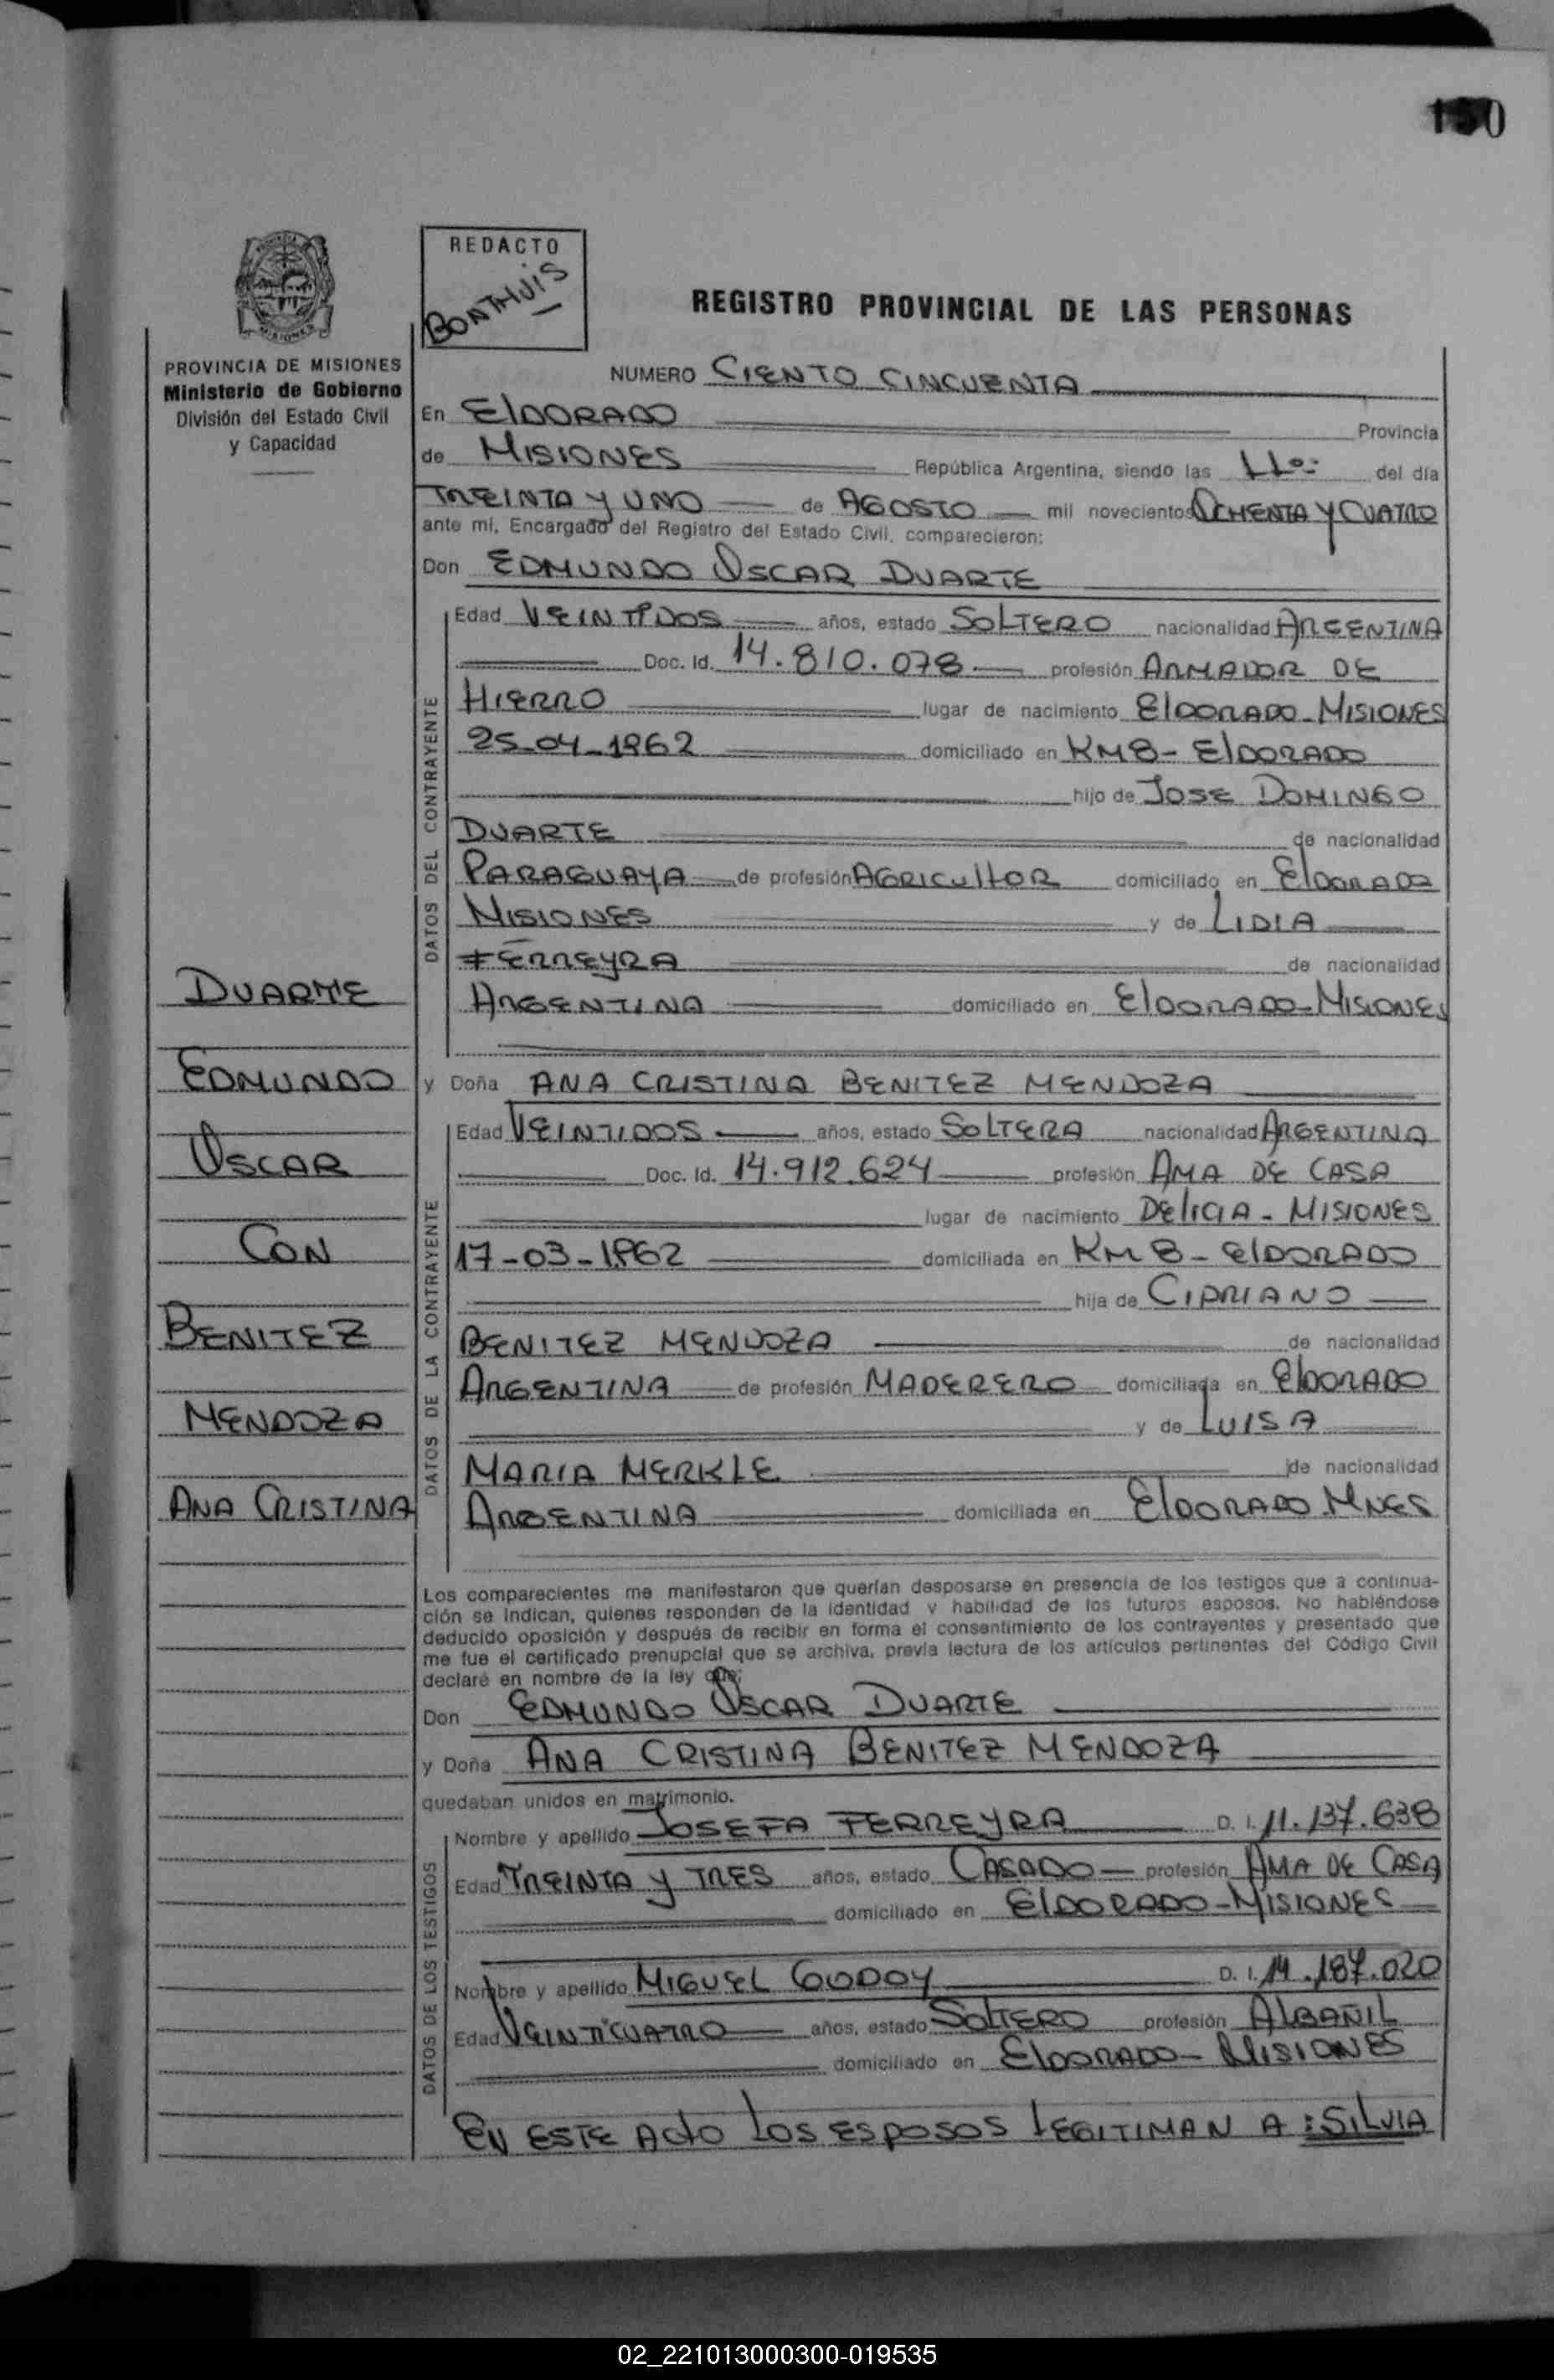 150
REDACTO
BONTHUIS
REGISTRO PROVINCIAL DE LAS PERSONAS
PROVINCIA DE MISIONES
Ministerio de Gobierno
División del Estado Civil
y Capacidad
NUMERO CIENTO CINCUENTA
En ElDORADO Provincia
de MISIONES República Argentina, siendo las 11º: del día
TREINTA Y UNO de AGOSTO mil novecientos OCHENTA Y CUATRO
ante mí, Encargado del Registro del Estado Civil, comparecieron:
Don EDMUNDO OSCAR DUARTE
DATOS DEL CONTRAYENTE
Edad VEINTIDOS años, estado SOLTERO nacionalidad ARGENTINA
Doc. Id. 14.810.078 profesión ARMADOR DE
HIERRO lugar de nacimiento ElDORADO-MISIONES
25-04-1962 domiciliado en KM8- ElDORADO
hijo de JOSE DOMINGO
DUARTE de nacionalidad
PARAGUAYA de profesión AGRICUltOR domiciliado en ElDORADO
MISIONES y de LIDIA
FERREYRA de nacionalidad
ARGENTINA domiciliado en ElDORADO-MISIONES
DUARTE
EDMUNDO
OSCAR
CON
BENITEZ
MENDOZA
ANA CRISTINA
y Doña ANA CRISTINA BENITEZ MENDOZA
DATOS DE LA CONTRAYENTE
Edad VEINTIDOS años, estado SOLTERA nacionalidad ARGENTINA
Doc. Id. 14.912.624 profesión AMA DE CASA
lugar de nacimiento DElICIA - MISIONES
17-03-1962 domiciliada en KM 8- ElDORADO
hija de CIPRIANO
BENITEZ MENDOZA de nacionalidad
ARGENTINA de profesión MADERERO domiciliada en ElDORADO
y de LUISA
MARIA MERKLE de nacionalidad
ARGENTINA domiciliada en ElDORADO.MNES
Los comparecientes me manifestaron que querían desposarse en presencia de los testigos que a continua-
ción se indican, quienes responden de la identidad y habilidad de los futuros esposos. No habiéndose
deducido oposición y después de recibir en forma el consentimiento de los contrayentes y presentado que
me fue el certificado prenupcial que se archiva, previa lectura de los artículos pertinentes del Código Civil
declaré en nombre de la ley que:
Don EDMUNDO OSCAR DUARTE
y Doña ANA CRISTINA BENITEZ MENDOZA
quedaban unidos en matrimonio.
DATOS DE LOS TESTIGOS
Nombre y apellido JOSEFA FERREYRA D. I. 11.137.638
Edad TREINTA Y TRES años, estado CASADO profesión AMA DE CASA
domiciliado en ElDORADO-MISIONES
Nombre y apellido MIGUEL GODOY D. I. 14.187.020
Edad VEINTICUATRO años, estado SOLTERO profesión ALBAÑIL
domiciliado en ElDORADO- MISIONES
EN ESTE ACtO LOS ESPOSOS LEGITIMAN A : SILVIA
02_221013000300-019535